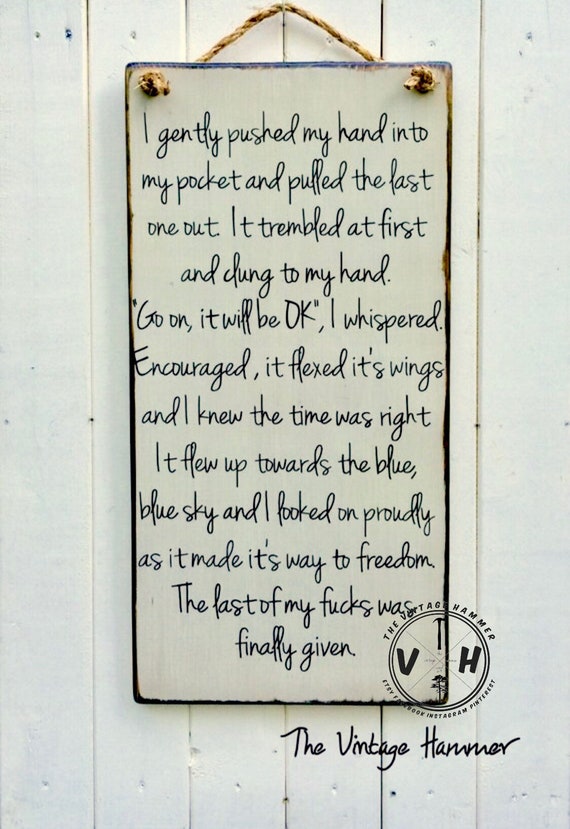 I gently pushed my hand into
my pocket and pulled the last
one out. It trembled at first
and clung to my hand.
"Go on, it will be OK", I whispered.
Encouraged, it flexed it's wings
and I knew the time was right
It flew up towards the blue,
blue sky and I looked on proudly
as it made it's way to freedom.
The last of my fucks was
finally given.
THE VINTAGE HAMMER
V H
ETSY FACEBOOK INSTAGRAM PINTEREST
The Vintage Hammer